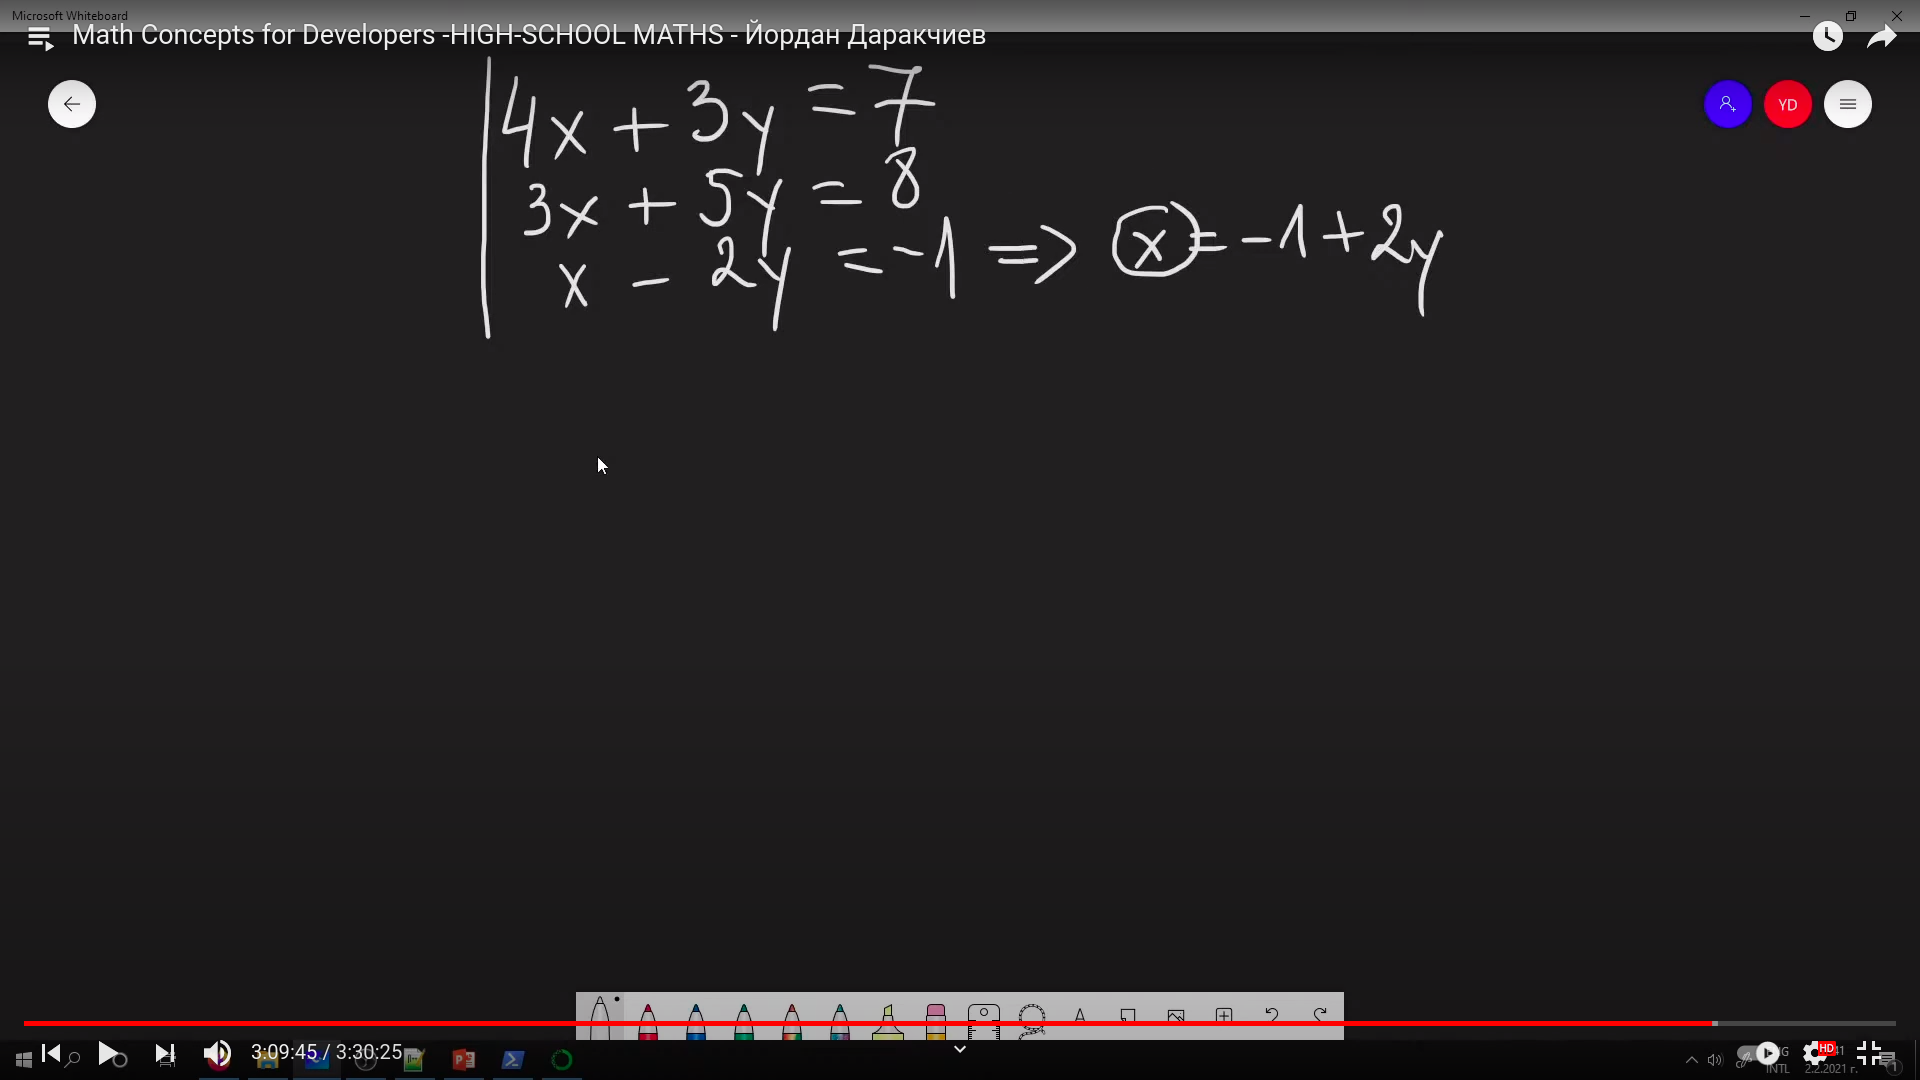 Microsoft Whiteboard
Math Concepts for Developers -HIGH-SCHOOL MATHS - Йордан Даракчиев
YD
4x + 3y = 7
3x + 5y = 8
x - 2y = -1 => x = -1 + 2y
3:09:45 / 3:30:25
HD
INTL
2.2.2021 г.
1